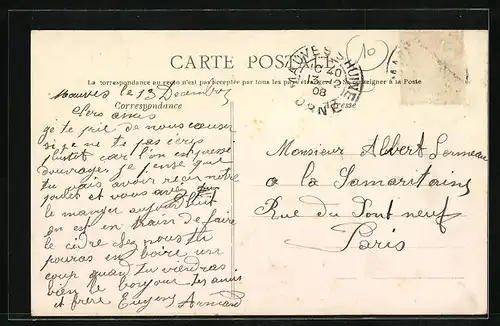 CARTE POSTALE
La correspondance au recto n'est pas acceptée par tous les pays étrangers. Se renseigner à la Poste
Correspondance
Adresse
MAUVES S. HUISNE
13 12
08
ORNE
Mauves le 13 Decembre
Cers amis
ge te prie de nous
si ge ne te pas ecris
plustot car l'on est pressé
douvrages ge pense que
tu vais avoir reçu notre
poulet et vous avez
le manger aujourd'huit
on est en train de faire
le cidre chez nous tu
pouras en boire une
coup quand tu viendras
bien le bonjour tes amis
et frère Eugène Armand
Monsieur Albert
a la Samaritaine
Rue du Pont neuf
Paris